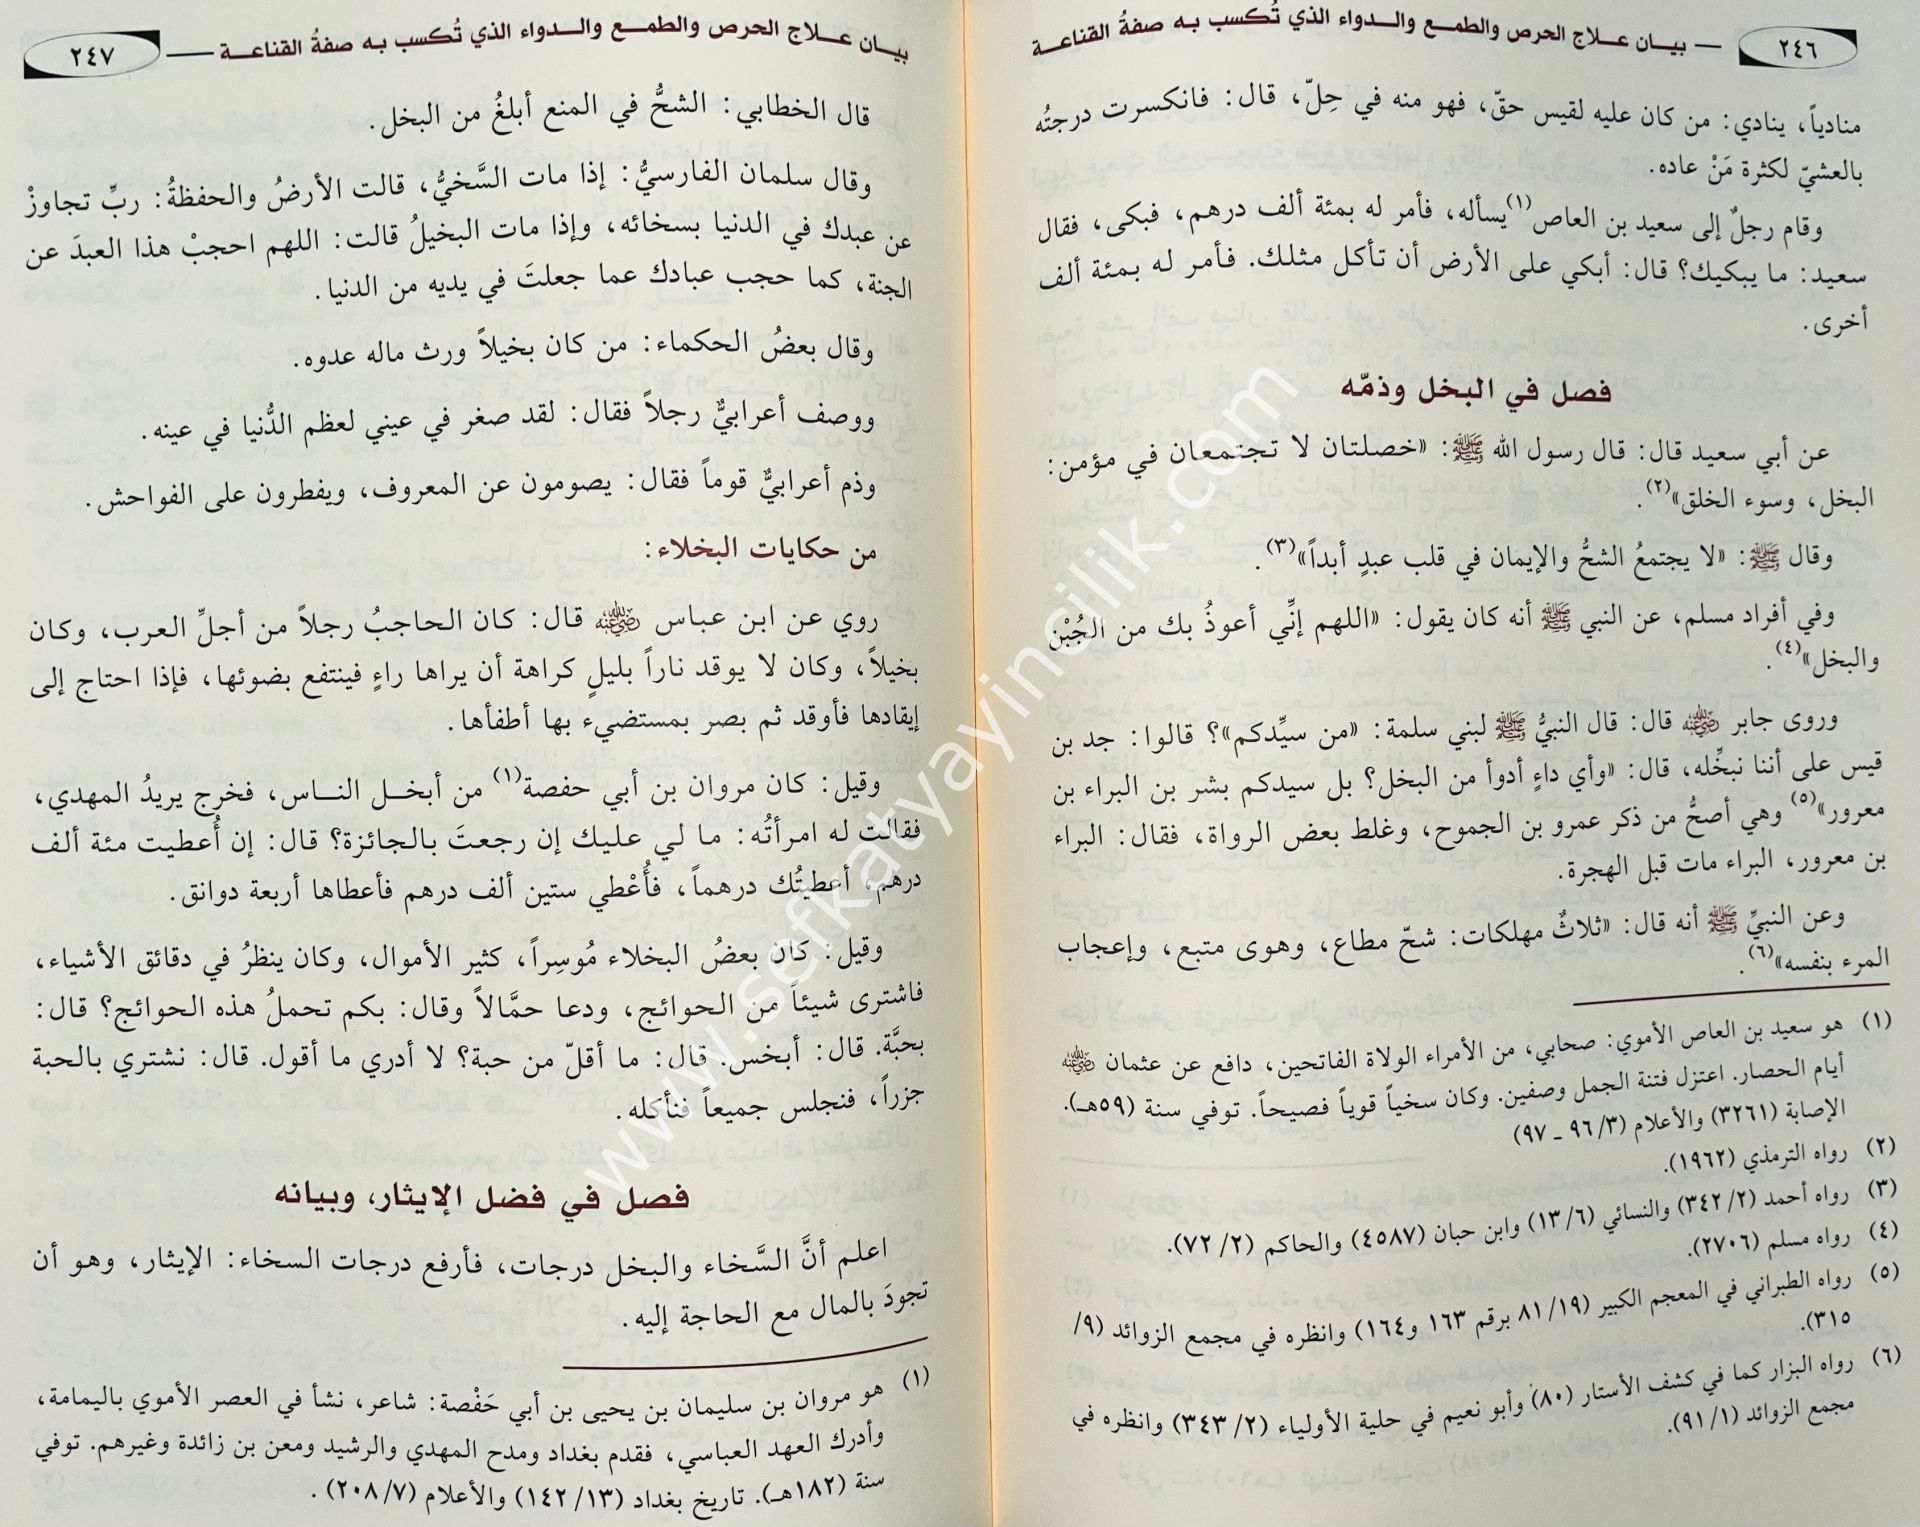 ٢٤٦ — بيان علاج الحرص والطمع والدواء الذي تُكسب به صفةُ القناعة
منادياً، ينادي: من كان عليه لقيس حقّ، فهو منه في حِلّ، قال: فانكسرت درجتُه
بالعشيّ لكثرة مَنْ عاده.
وقام رجلٌ إلى سعيد بن العاص(١) يسأله، فأمر له بمئة ألف درهم، فبكى، فقال
سعيد: ما يبكيك؟ قال: أبكي على الأرض أن تأكل مثلك. فأمر له بمئة ألف
أخرى.
فصل في البخل وذمّه
عن أبي سعيد قال: قال رسول الله ﷺ: «خصلتان لا تجتمعان في مؤمن:
البخل، وسوء الخلق»(٢).
وقال ﷺ: «لا يجتمعُ الشحُّ والإيمان في قلب عبدٍ أبداً»(٣).
وفي أفراد مسلم، عن النبي ﷺ أنه كان يقول: «اللهم إنِّي أعوذُ بك من الجُبْن
والبخل»(٤).
وروى جابر رضي الله عنه قال: قال النبيُّ ﷺ لبني سلمة: «من سيِّدكم»؟ قالوا: جد بن
قيس على أننا نبخِّله، قال: «وأي داءٍ أدوأ من البخل؟ بل سيدكم بشر بن البراء بن
معرور»(٥) وهي أصحُّ من ذكر عمرو بن الجموح، وغلط بعض الرواة، فقال: البراء
بن معرور، البراء مات قبل الهجرة.
وعن النبيِّ ﷺ أنه قال: «ثلاثٌ مهلكات: شحّ مطاع، وهوى متبع، وإعجاب
المرء بنفسه»(٦).
(١) هو سعيد بن العاص الأموي: صحابي، من الأمراء الولاة الفاتحين، دافع عن عثمان رضي الله عنه
أيام الحصار. اعتزل فتنة الجمل وصفين. وكان سخياً قوياً فصيحاً. توفي سنة (٥٩هـ).
الإصابة (٣٢٦١) والأعلام (٩٦/٣ ـ ٩٧)
(٢) رواه الترمذي (١٩٦٢).
(٣) رواه أحمد (٣٤٢/٢) والنسائي (١٣/٦) وابن حبان (٤٥٨٧) والحاكم (٧٢/٢).
(٤) رواه مسلم (٢٧٠٦).
(٥) رواه الطبراني في المعجم الكبير (٨١/١٩ برقم ١٦٣ و١٦٤) وانظره في مجمع الزوائد (٩/
٣١٥).
(٦) رواه البزار كما في كشف الأستار (٨٠) وأبو نعيم في حلية الأولياء (٣٤٣/٢) وانظره في
مجمع الزوائد (٩١/١).
بيان علاج الحرص والطمع والدواء الذي تُكسب به صفةُ القناعة — ٢٤٧
قال الخطابي: الشحُّ في المنع أبلغُ من البخل.
وقال سلمان الفارسيُّ: إذا مات السَّخيُّ، قالت الأرضُ والحفظةُ: ربِّ تجاوزْ
عن عبدك في الدنيا بسخائه، وإذا مات البخيلُ قالت: اللهم احجبْ هذا العبدَ عن
الجنة، كما حجب عبادك عما جعلتَ في يديه من الدنيا.
وقال بعضُ الحكماء: من كان بخيلاً ورث ماله عدوه.
ووصف أعرابيٌّ رجلاً فقال: لقد صغر في عيني لعظم الدُّنيا في عينه.
وذم أعرابيٌّ قوماً فقال: يصومون عن المعروف، ويفطرون على الفواحش.
من حكايات البخلاء:
روي عن ابن عباس رضي الله عنه قال: كان الحاجبُ رجلاً من أجلِّ العرب، وكان
بخيلاً، وكان لا يوقد ناراً بليلٍ كراهة أن يراها راءٍ فينتفع بضوئها، فإذا احتاج إلى
إيقادها فأوقد ثم بصر بمستضيء بها أطفأها.
وقيل: كان مروان بن أبي حفصة(١) من أبخل الناس، فخرج يريدُ المهدي،
فقالت له امرأتُه: ما لي عليك إن رجعتَ بالجائزة؟ قال: إن أُعطيت مئة ألف
درهم، أعطيتُك درهماً، فأُعْطي ستين ألف درهم فأعطاها أربعة دوانق.
وقيل: كان بعضُ البخلاء مُوسِراً، كثير الأموال، وكان ينظرُ في دقائق الأشياء،
فاشترى شيئاً من الحوائج، ودعا حمَّالاً وقال: بكم تحملُ هذه الحوائج؟ قال:
بحبَّة. قال: أبخس. قال: ما أقلّ من حبة؟ لا أدري ما أقول. قال: نشتري بالحبة
جزراً، فنجلس جميعاً فنأكله.
فصل في فضل الإيثار، وبيانه
اعلم أنَّ السَّخاء والبخل درجات، فأرفع درجات السخاء: الإيثار، وهو أن
تجودَ بالمال مع الحاجة إليه.
(١) هو مروان بن سليمان بن يحيى بن أبي حَفْصة: شاعر، نشأ في العصر الأموي باليمامة،
وأدرك العهد العباسي، فقدم بغداد ومدح المهدي والرشيد ومعن بن زائدة وغيرهم. توفي
سنة (١٨٢هـ). تاريخ بغداد (١٤٢/١٣) والأعلام (٢٠٨/٧).
www.sefkatyayincilik.com